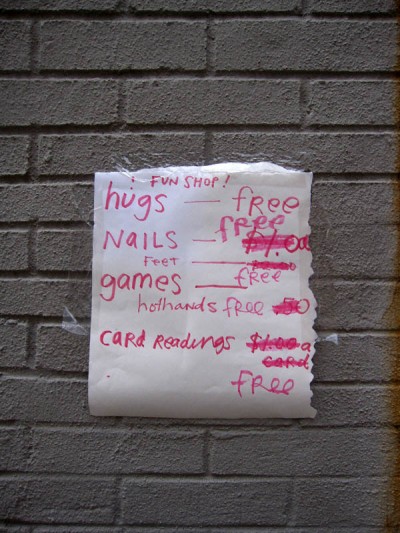 ! FUN SHOP!
hugs — free
free
NAILS — $1.00
FEET —
games — free
hothands free .50
CARD READINGS $1.00 a
CARD
free